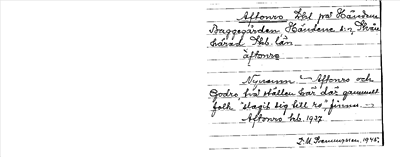 Aftonro Lht på Händene
Baggegården Händene sn, Skån
härad Skb. län
àftonrω
Nynamn – Aftonro och
Godro, två ställen här där gammalt
folk "slagit sig till ro", finns. –
Aftonro hb. 1927
D. M. 1945;